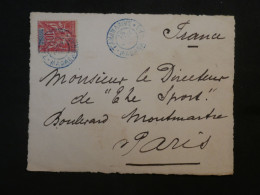 France
Monsieur le Directeur
de "The Sport"
Boulevard Montmartre
Paris